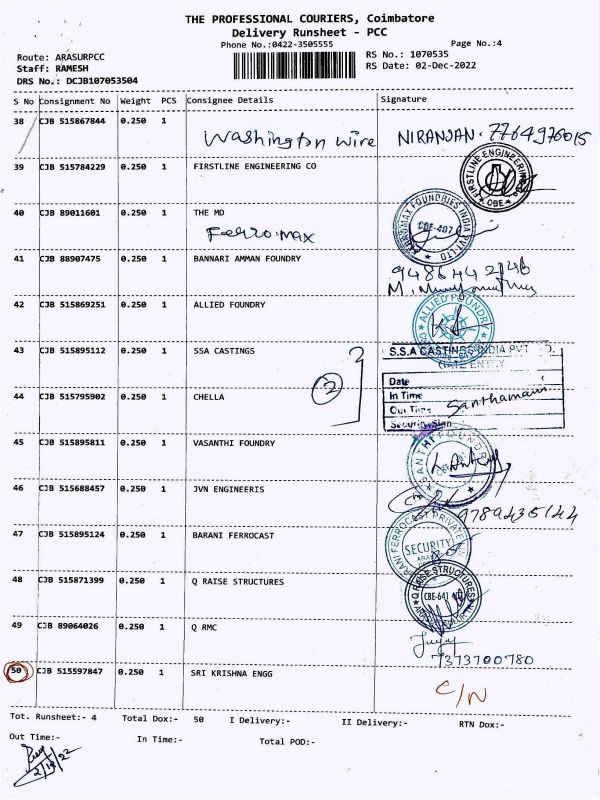 THE PROFESSIONAL COURIERS, Coimbatore
Delivery Runsheet - PCC
Phone No.:0422-3505555
Page No.:4
Route: ARASURPCC
RS No.: 1070535
Staff: RAMESH
RS Date: 02-Dec-2022
DRS No.: DCJB107053504
S No Consignment No Weight PCS Consignee Details Signature
38 CJB 515867844 0.250 1
Washington wire NIRANJAN. 7764976015
39 CJB 515784229 0.250 1 FIRSTLINE ENGINEERING CO
FIRSTLINE ENGINEERING
CBE
40 CJB 89011601 0.250 1 THE MD
Ferro max
FERROMAX FOUNDRIES INDIA PVT LTD
CBE-407
41 CJB 88907475 0.250 1 BANNARI AMMAN FOUNDRY
42 CJB 515869251 0.250 1 ALLIED FOUNDRY
ALLIED FOUNDRY
43 CJB 515895112 0.250 1 SSA CASTINGS
S.S.A CASTINGS INDIA PVT
GATE ENTRY
Date
2
In Time
44 CJB 515795902 0.250 1 CHELLA
Out Time
Santhamani
Security Sign
45 CJB 515895811 0.250 1 VASANTHI FOUNDRY
46 CJB 515688457 0.250 1 JVN ENGINEERIS
9789435144
47 CJB 515895124 0.250 1 BARANI FERROCAST
BARANI FERROCAST PRIVATE
SECURITY
48 CJB 515871399 0.250 1 Q RAISE STRUCTURES
Q RAISE STRUCTURES
CBE-641 407
49 CJB 89064026 0.250 1 Q RMC
7373700780
50 CJB 515597847 0.250 1 SRI KRISHNA ENGG
C/N
Tot. Runsheet:- 4 Total Dox:- 50 I Delivery:- II Delivery:- RTN Dox:-
Out Time:- In Time:- Total POD:-
2/12/22